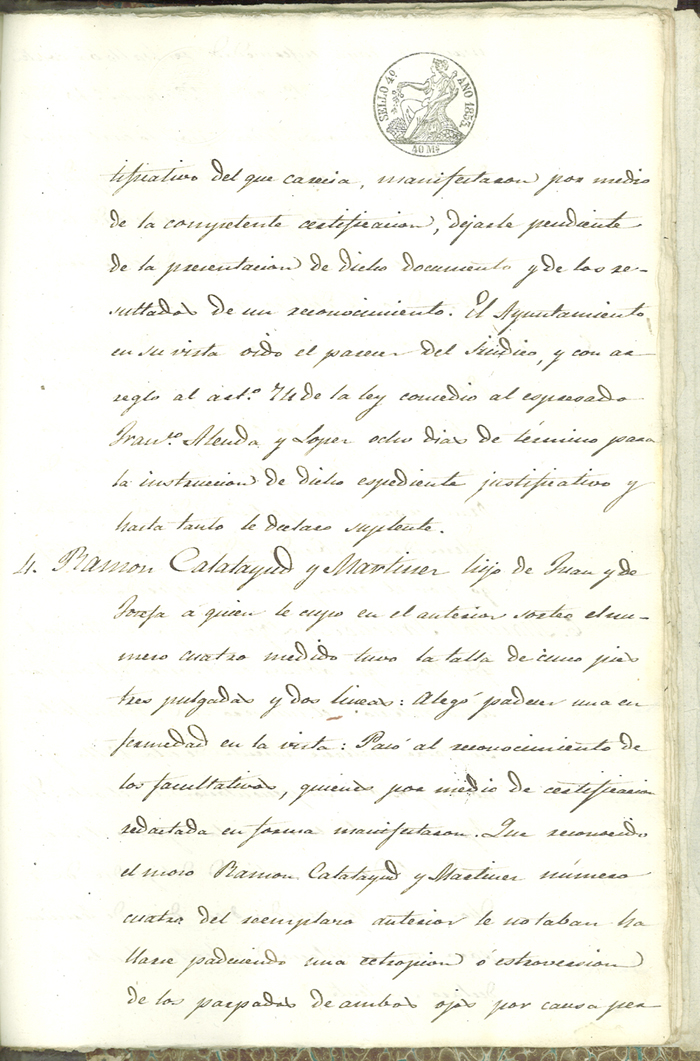 SELLO 4º AÑO 1853.
40 Ms
tificativo del que carecia, manifestaron por medio
de la competente certificacion, dejarle pendiente
de la presentacion de dicho documento y de los re-
sultados de un reconocimiento. El Ayuntamiento
en su vista oido el parecer del Sindico, y con ar-
reglo al art.º 74 de la ley comedio al espresado
Fran.co Alenda y Lopez ocho dias de término para
la instruccion de dicho espediente justificativo y
hasta tanto le declaro suplente.
4. Ramon Calatayud y Martinez hijo de Juan y de
Josefa a quien le cupo en el anterior sorteo el nu-
mero cuatro medido tuvo la talla de cinco pies
tres pulgadas y dos lineas: Alegó padecer una en
fermedad en la vista: Pasó al reconocimiento de
los facultativos, quienes por medio de certificacion
redactada en forma manifestaron. Que reconocido
el moso Ramon Calatayud y Martinez número
cuatro del reemplazo anterior le notaban ha
llarse padeciendo una ectropion ó estroversion
de los parpados de ambos ojos por causa per